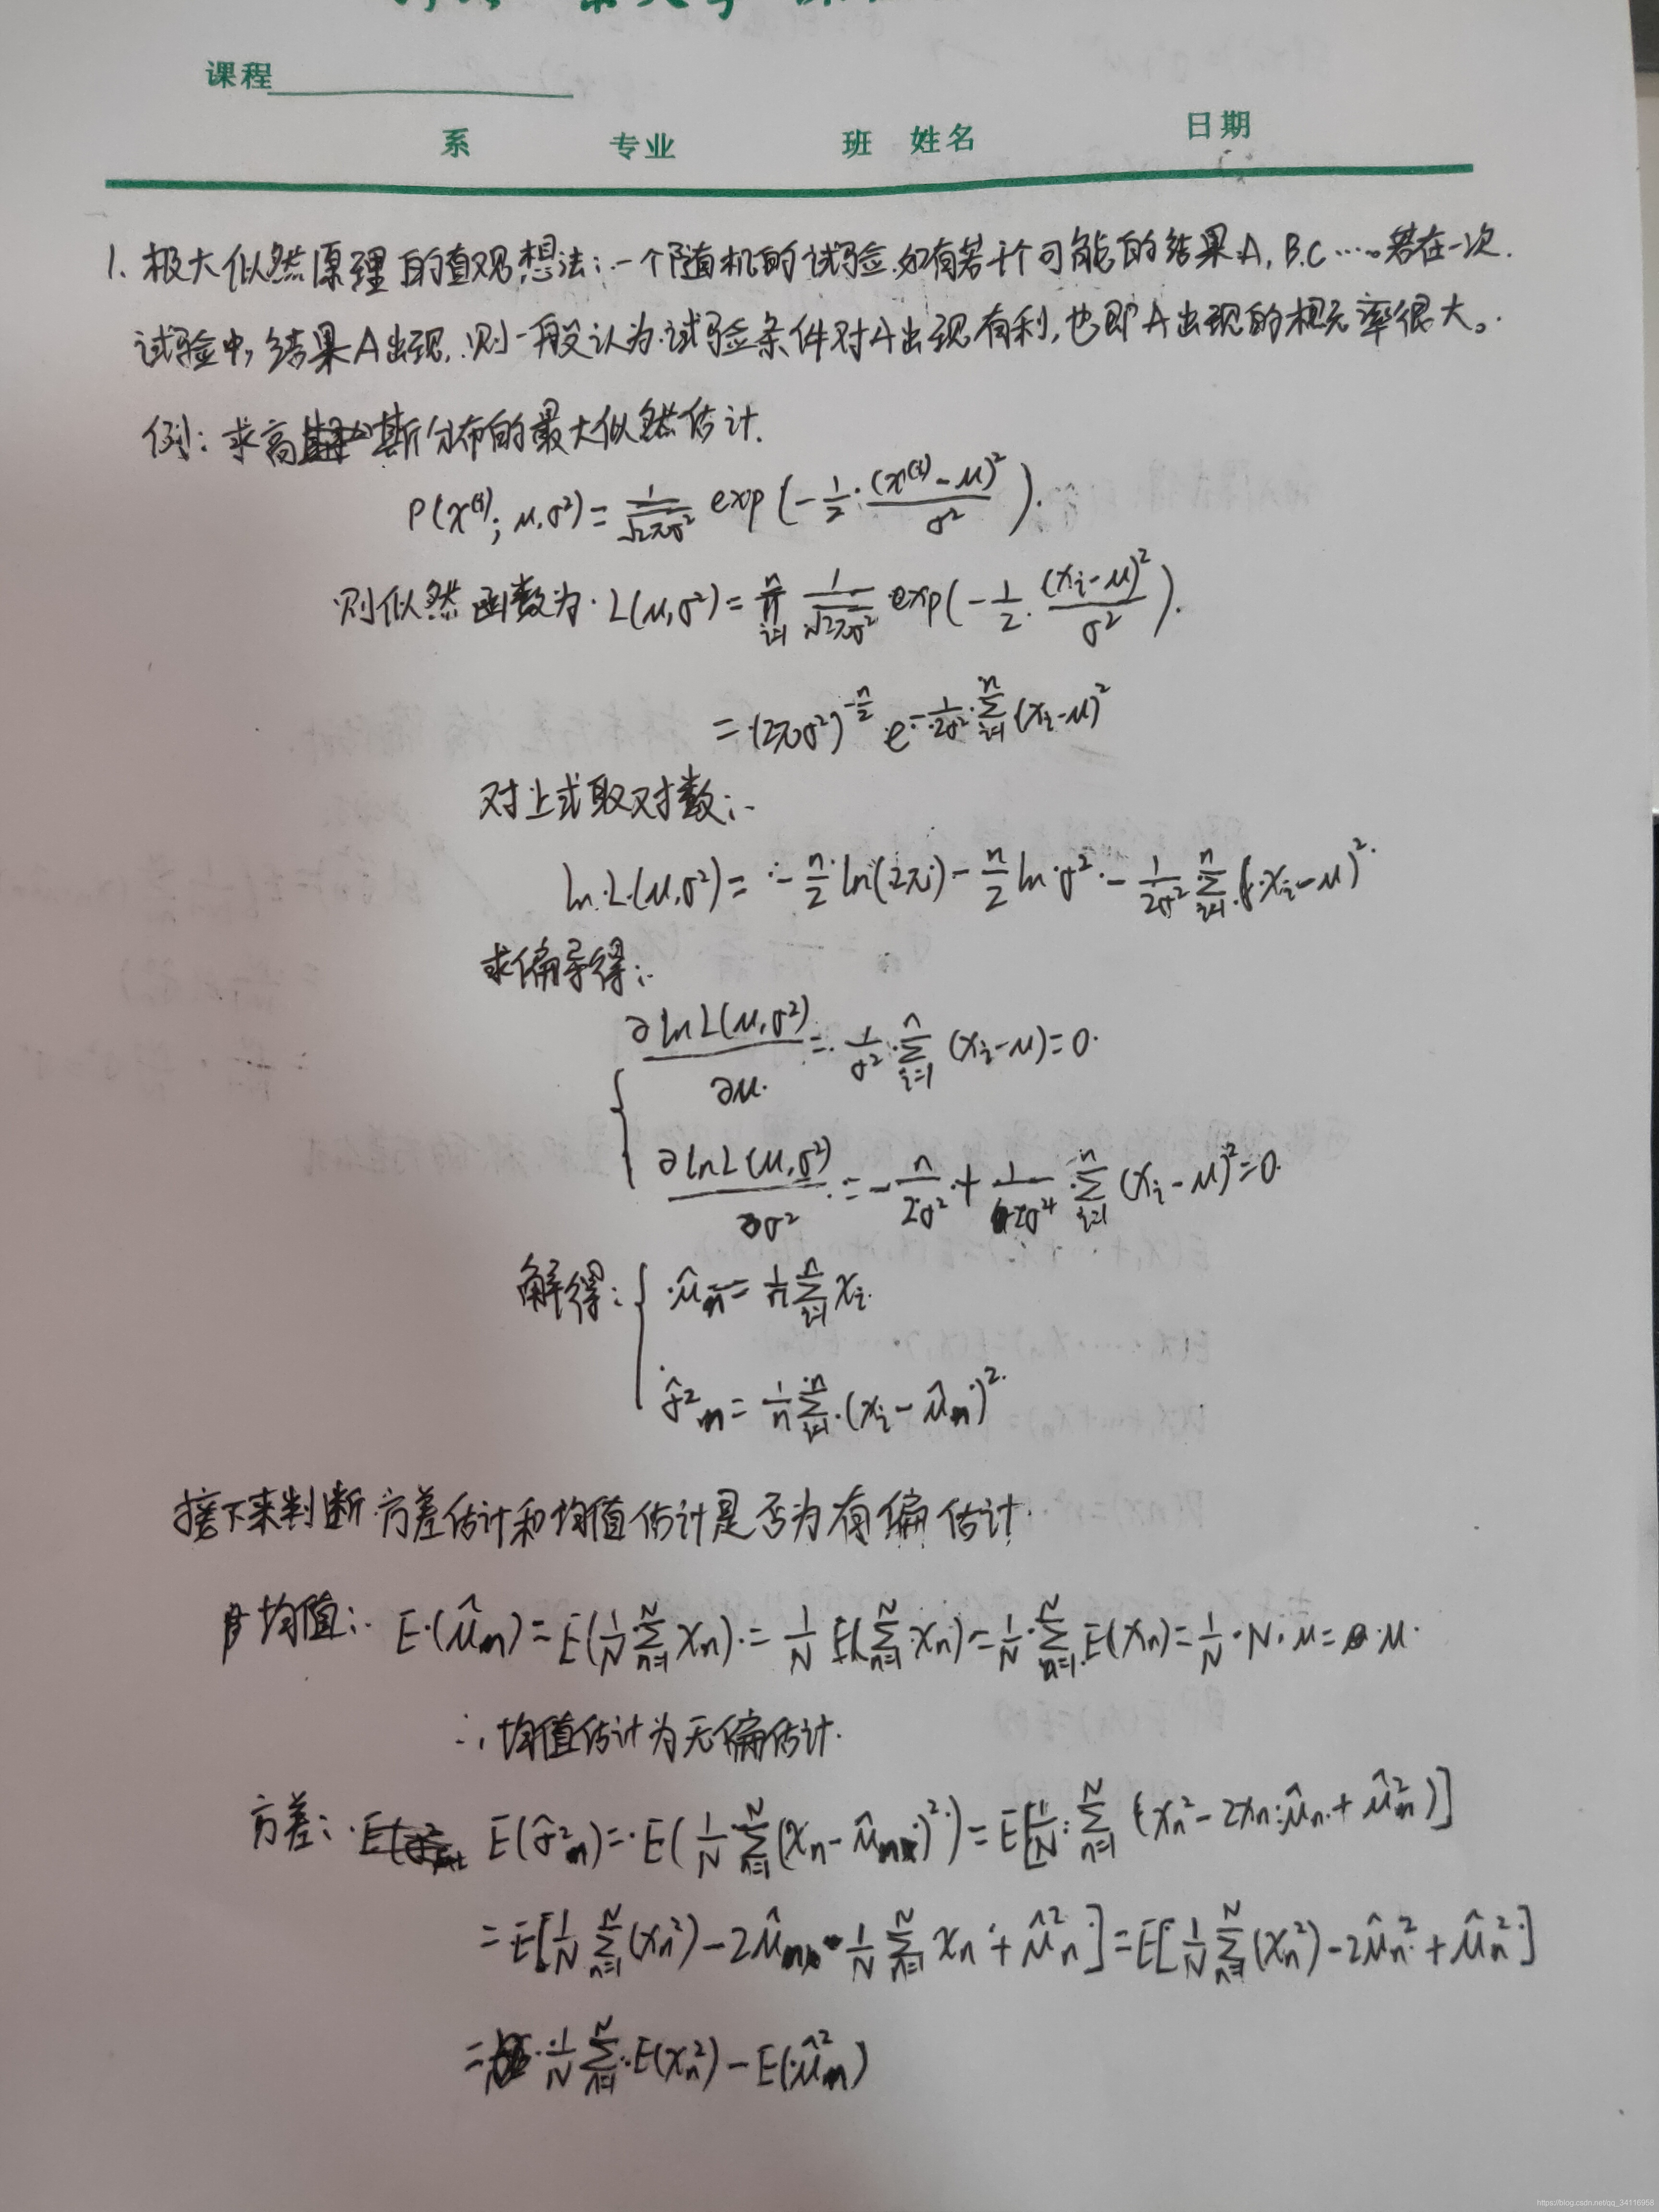 课程
系 专业 班 姓名 日期
1. 极大似然原理的直观想法:一个随机的试验.如有若干个可能的结果A,B.C……若在一次.
试验中,结果A出现,则一般认为试验条件对A出现有利,也即A出现的概率很大。
例:求高斯分布的最大似然估计.
P(x⁽ⁱ⁾; μ,σ²) = 1/√(2πσ²) exp(-1/2·(x⁽ⁱ⁾-μ)²/σ²).
则似然函数为 L(μ,σ²) = ∏_{i=1}^{n} 1/√(2πσ²) exp(-1/2·(x_i-μ)²/σ²).
= (2πσ²)^{-n/2} e^{-1/(2σ²) ∑_{i=1}^{n} (x_i-μ)²}
对上式取对数:
ln L(μ,σ²) = -n/2 ln(2π) - n/2 ln σ² - 1/(2σ²) ∑_{i=1}^{n} (x_i-μ)²
求偏导得:
{ ∂lnL(μ,σ²)/∂μ = 1/σ² ∑_{i=1}^{n} (x_i-μ) = 0
∂lnL(μ,σ²)/∂σ² = -n/(2σ²) + 1/(2σ⁴) ∑_{i=1}^{n} (x_i-μ)² = 0
解得: { μ̂_m = 1/n ∑_{i=1}^{n} x_i
σ̂²_m = 1/n ∑_{i=1}^{n} (x_i-μ̂_m)²
接下来判断方差估计和均值估计是否为有偏估计
均值: E(μ̂_m) = E(1/N ∑_{n=1}^{N} x_n) = 1/N E(∑_{n=1}^{N} x_n) = 1/N ∑_{n=1}^{N} E(x_n) = 1/N·N·μ = μ
∴ 均值估计为无偏估计.
方差: E(σ̂²_m) = E(1/N ∑_{n=1}^{N} (x_n-μ̂_m)²) = E[1/N ∑_{n=1}^{N} (x_n²-2x_n μ̂_n+μ̂_m²)]
= E[1/N ∑_{n=1}^{N} (x_n²) - 2μ̂_m·1/N ∑_{n=1}^{N} x_n + μ̂_n²] = E[1/N ∑_{n=1}^{N} (x_n²) - 2μ̂_n² + μ̂_n²]
= 1/N ∑_{n=1}^{N} E(x_n²) - E(μ̂_m²)
https://blog.csdn.net/qq_34116958